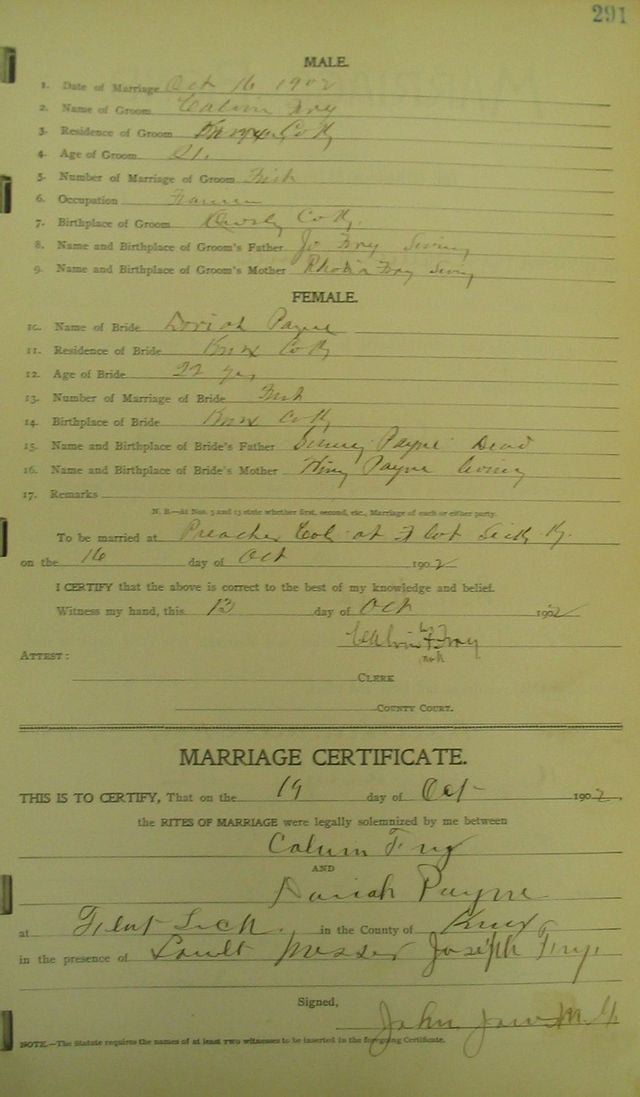 291
MALE.
1. Date of Marriage Oct 16 1902
2. Name of Groom Calvin Fry
3. Residence of Groom Knox Co Ky
4. Age of Groom 21.
5. Number of Marriage of Groom First
6. Occupation Farmer
7. Birthplace of Groom Owsley Co Ky.
8. Name and Birthplace of Groom's Father Jo Fry Living
9. Name and Birthplace of Groom's Mother Fry Living
FEMALE.
10. Name of Bride Doriah Payne
11. Residence of Bride Knox Co Ky
12. Age of Bride 22 yrs
13. Number of Marriage of Bride First
14. Birthplace of Bride Knox Co Ky
15. Name and Birthplace of Bride's Father Payne Dead
16. Name and Birthplace of Bride's Mother Payne Living
17. Remarks
N. B.—At Nos. 5 and 13 state whether first, second, etc., Marriage of each or either party.
To be married at Preacher at Flat Lick Ky.
on the 16 day of Oct 1902
I CERTIFY that the above is correct to the best of my knowledge and belief.
Witness my hand, this 13 day of Oct 1902
his
Calvin + Fry
mark
ATTEST:
CLERK
COUNTY COURT.
MARRIAGE CERTIFICATE.
THIS IS TO CERTIFY, That on the 19 day of Oct 1902.
the RITES OF MARRIAGE were legally solemnized by me between
Calvin Fry
AND
Doriah Payne
at Flat Lick. in the County of Knox
in the presence of Messer Joseph Fry.
Signed,
John M.G.
NOTE.—The Statute requires the names of at least two witnesses to be inserted in the foregoing Certificate.